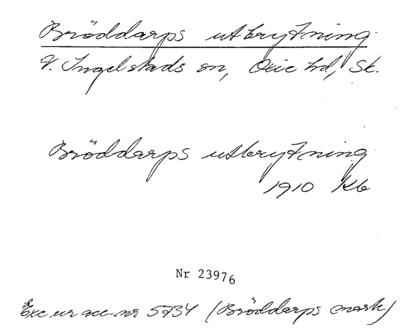 Bröddarps utbrytning
V. Ingelstads sn, Oxie hd, Sk.
Bröddarps utbrytning
1910 Kb
Nr 23976
Exc. ur acc. nr 5734 (Bröddarps mark)